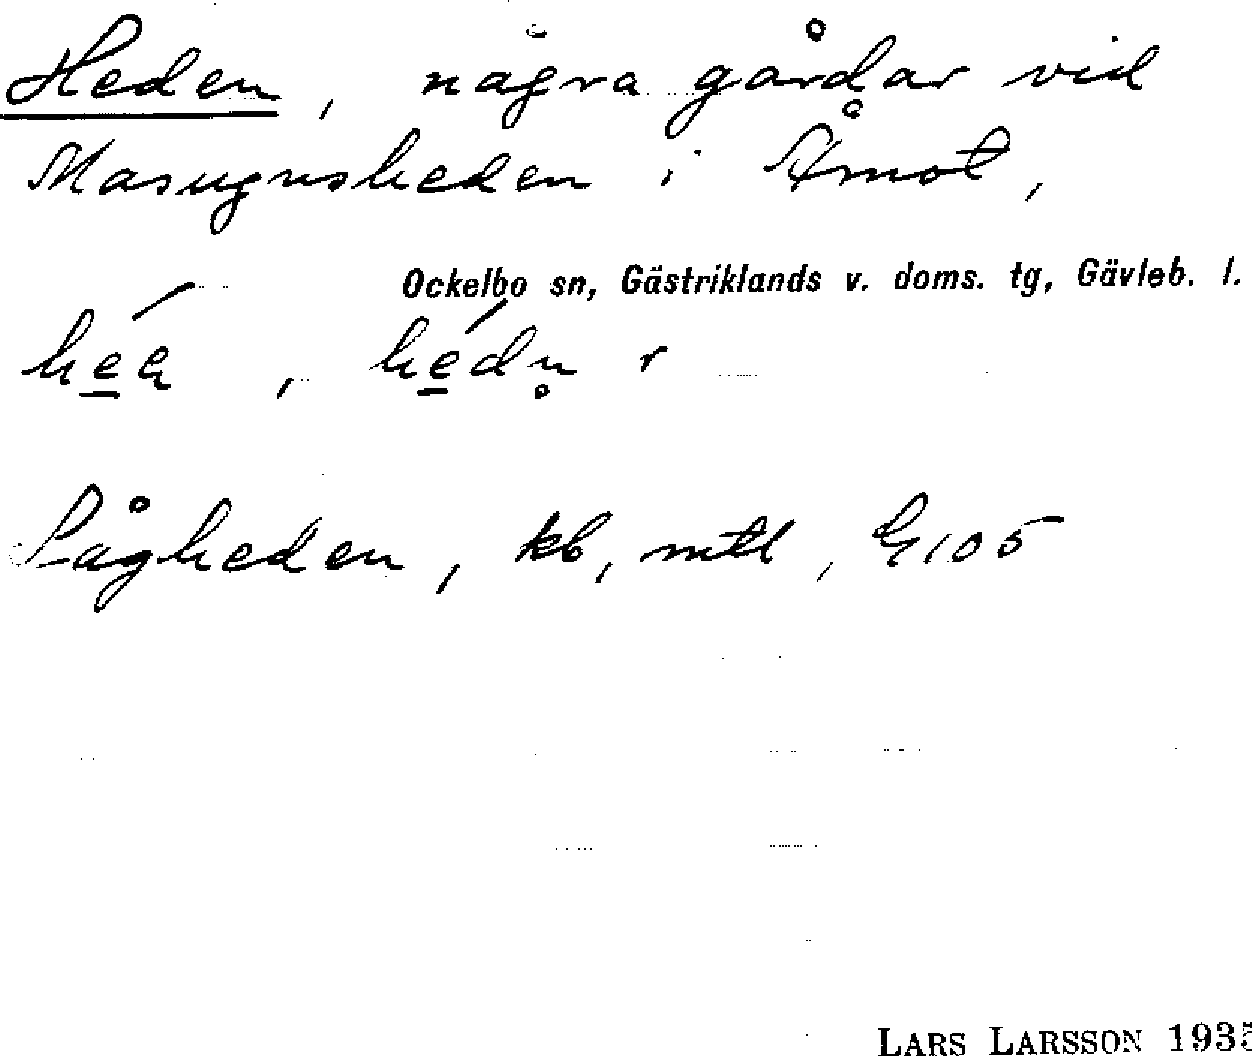 Heden, några gårdar vid
Masugnsheden i Åmot,
Ockelbo sn, Gästriklands v. doms. tg, Gävleb. l.
Sågheden, kb, mtl, G105
LARS LARSSON 1935